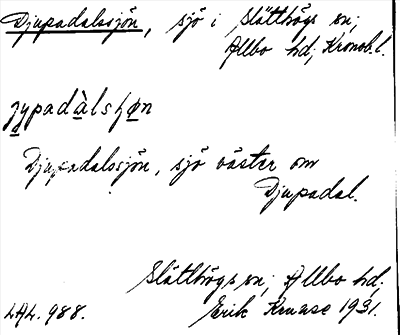 Djupadalssjön, sjö i Slätthögs sn;
Allbo hd; Kronob.l.
jypadàlsʃøn
Djupadalssjön, sjö väster om
Djupadal.
Slätthögs sn; Allbo hd;
LAL. 988. Erik Kruase 1931.